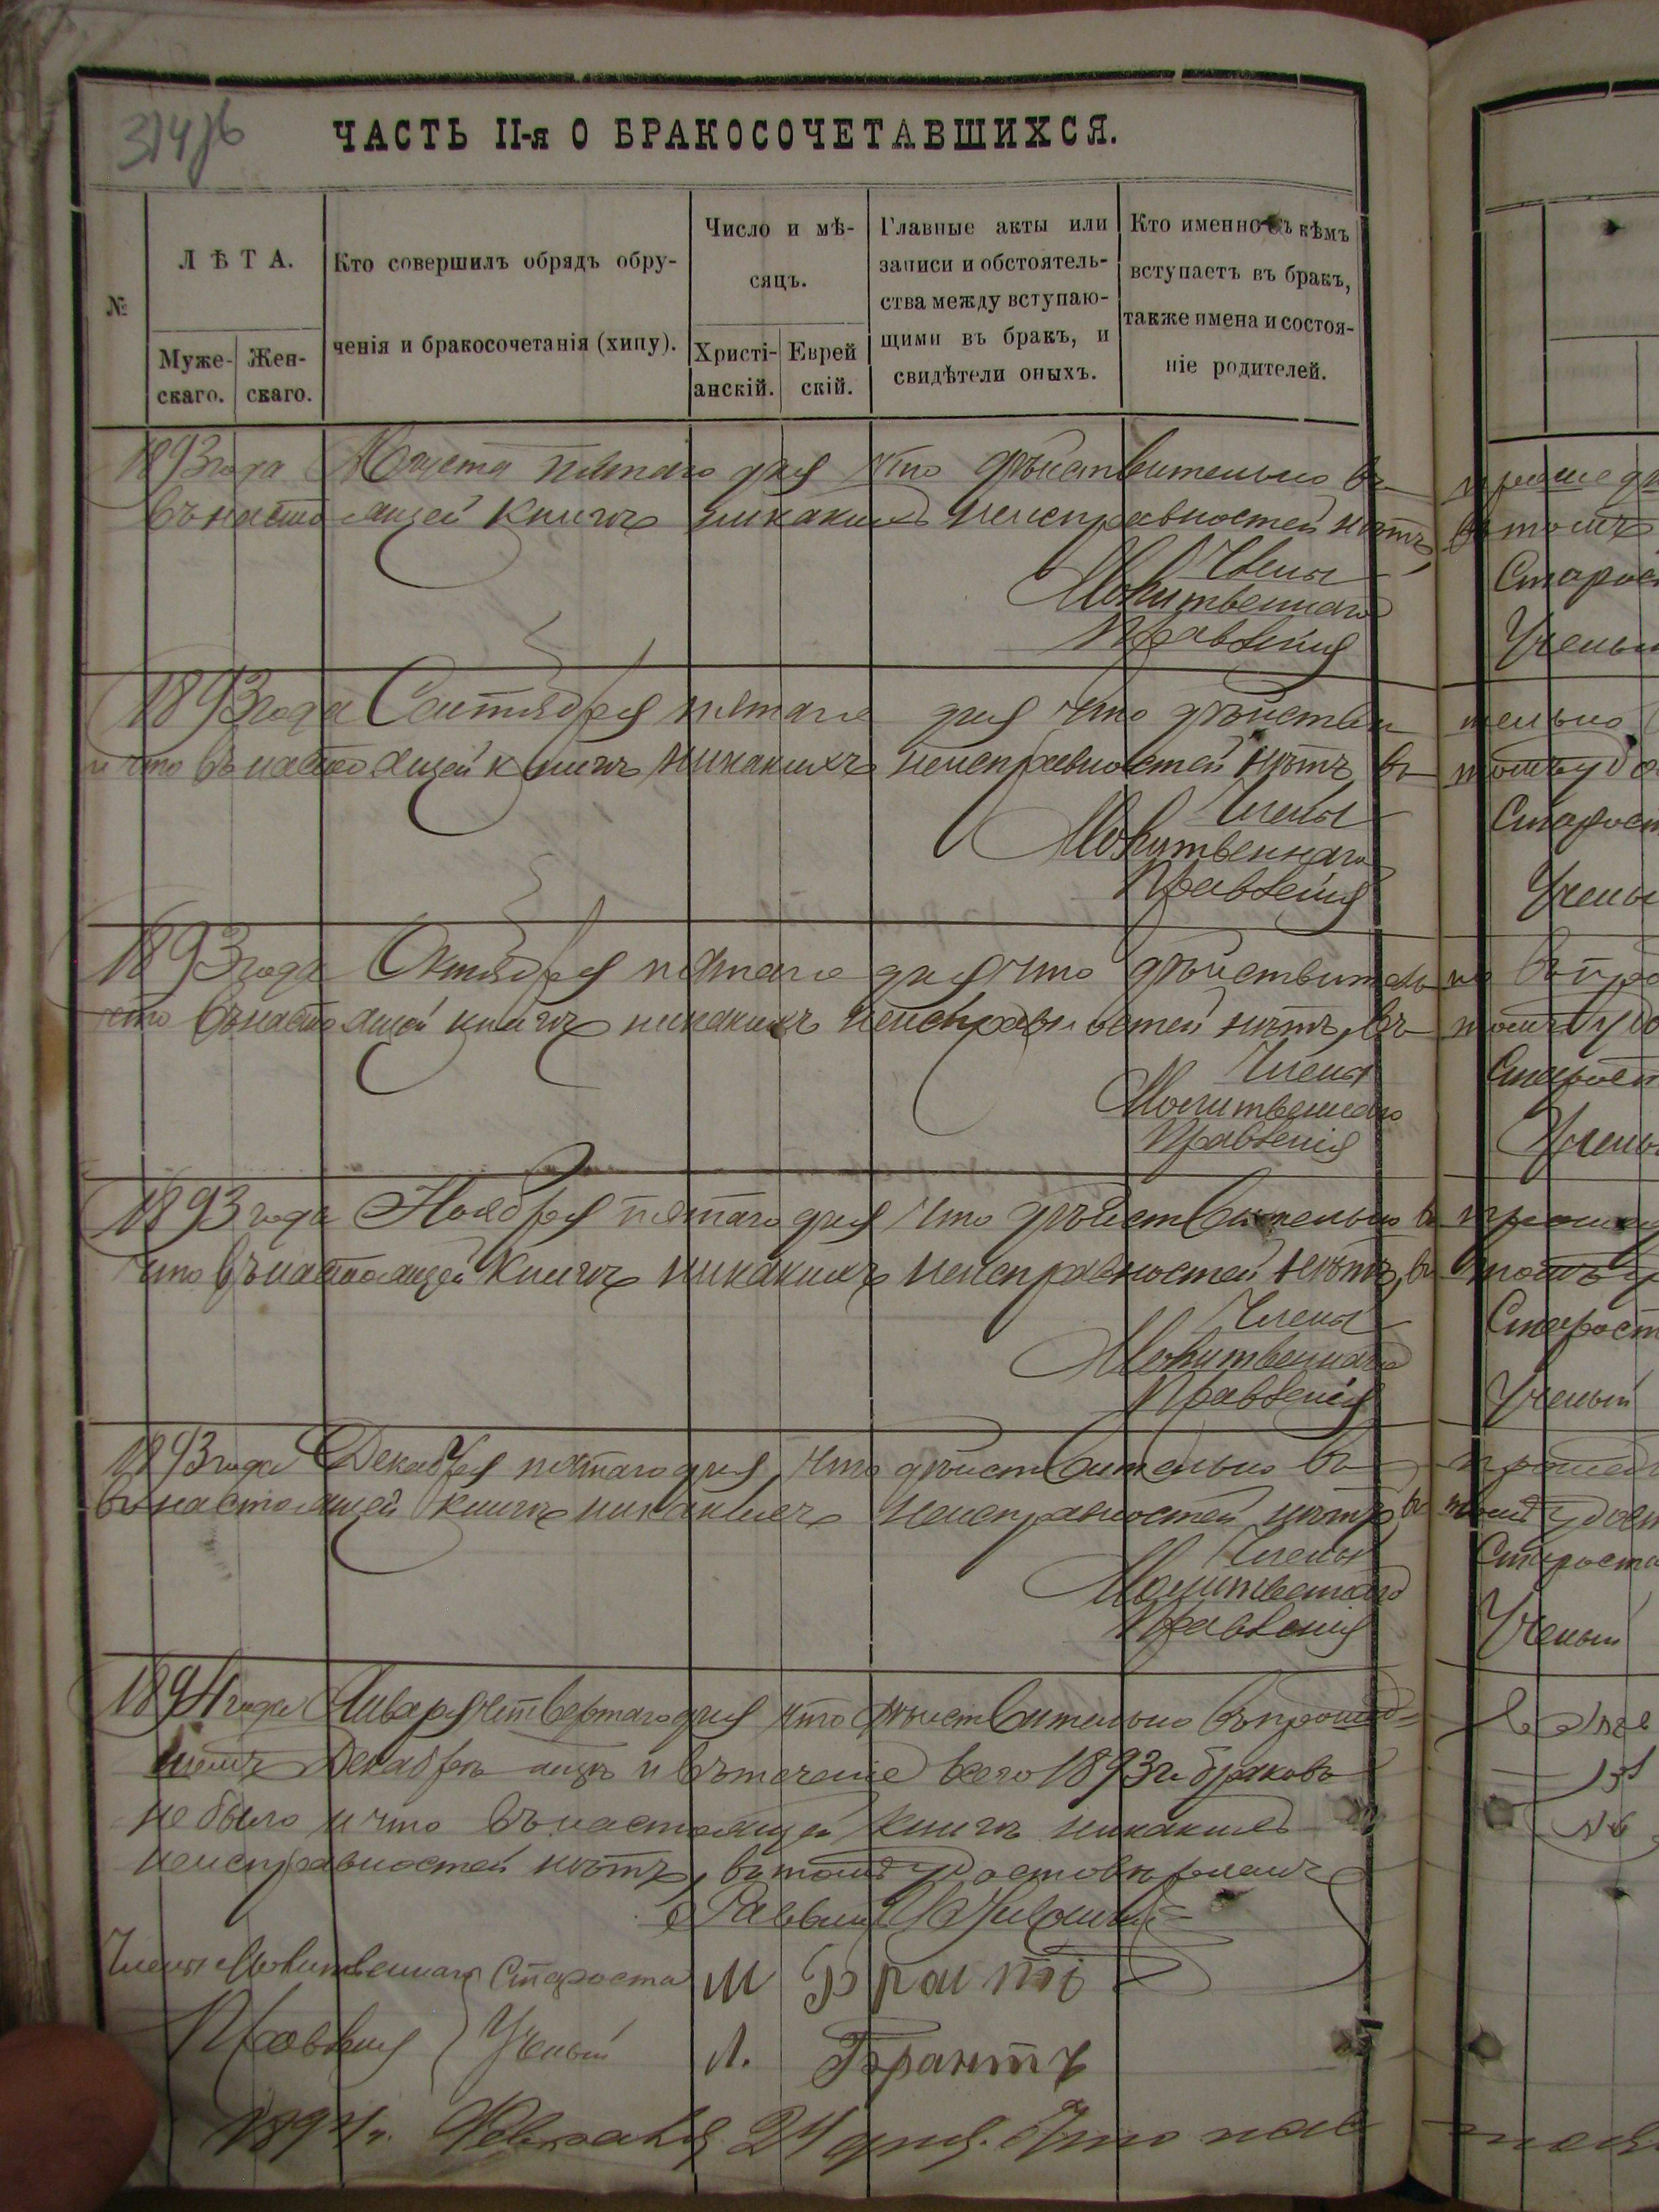 ЧАСТЬ II-я О БРАКОСОЧЕТАВШИХСЯ.
№
ЛѢТА.
Муже-
скаго.
Жен-
скаго.
Кто совершилъ обрядъ обру-
ченія и бракосочетанія (хипу).
Число и мѣ-
сяцъ.
Христі-
анскій.
Еврей
скій.
Главные акты или
записи и обстоятель-
ства между вступаю-
щими въ бракъ, и
свидѣтели оныхъ.
Кто именно съ кѣмъ
вступаетъ въ бракъ,
также имена и состоя-
ніе родителей.
1893 года Августа пятаго дня что дѣйствительно въ
въ настоящей книгѣ никакихъ неисправностей нѣтъ,
Члены
Молитвеннаго
Правленія
1893 года Сентября пятаго дня что дѣйстви
и что въ настоящей книгѣ никакихъ неисправностей нѣтъ въ
Члены
Молитвеннаго
Правленія
1893 года Октября пятаго дня что дѣйствитель
что въ настоящей книгѣ никакихъ неисправностей нѣтъ, въ
Члены
Молитвеннаго
Правленія
1893 года Ноября пятаго дня что дѣйствительно въ
что въ настоящей книгѣ никакихъ неисправностей нѣтъ, въ
Члены
Молитвеннаго
Правленія
1893 года Декабря пятаго дня, что дѣйствительно въ
въ настоящей книгѣ никакихъ неисправностей нѣтъ, въ
Члены
Молитвеннаго
Правленія
1894 года Января четвертаго дня что дѣйствительно въ прошед=
шемъ Декабрѣ мцѣ и въ теченіе всего 1893 г. браковъ
не было и что въ настоящей книгѣ никакихъ
неисправностей нѣтъ, въ томъ удостовѣряемъ
Раввинъ
Члены Молитвеннаго Староста М Брантъ
Правленія Ученый Л. Брантъ
1894 г. Февраля 24 дня. Что
въ томъ
Старос
Учены
тельно
томъ удо
Старост
Учены
но въ про
томъ удо
Старост
Учены
прошед
томъ у
Старост
Ученый
прошед
томъ удост
Староста
Ученый